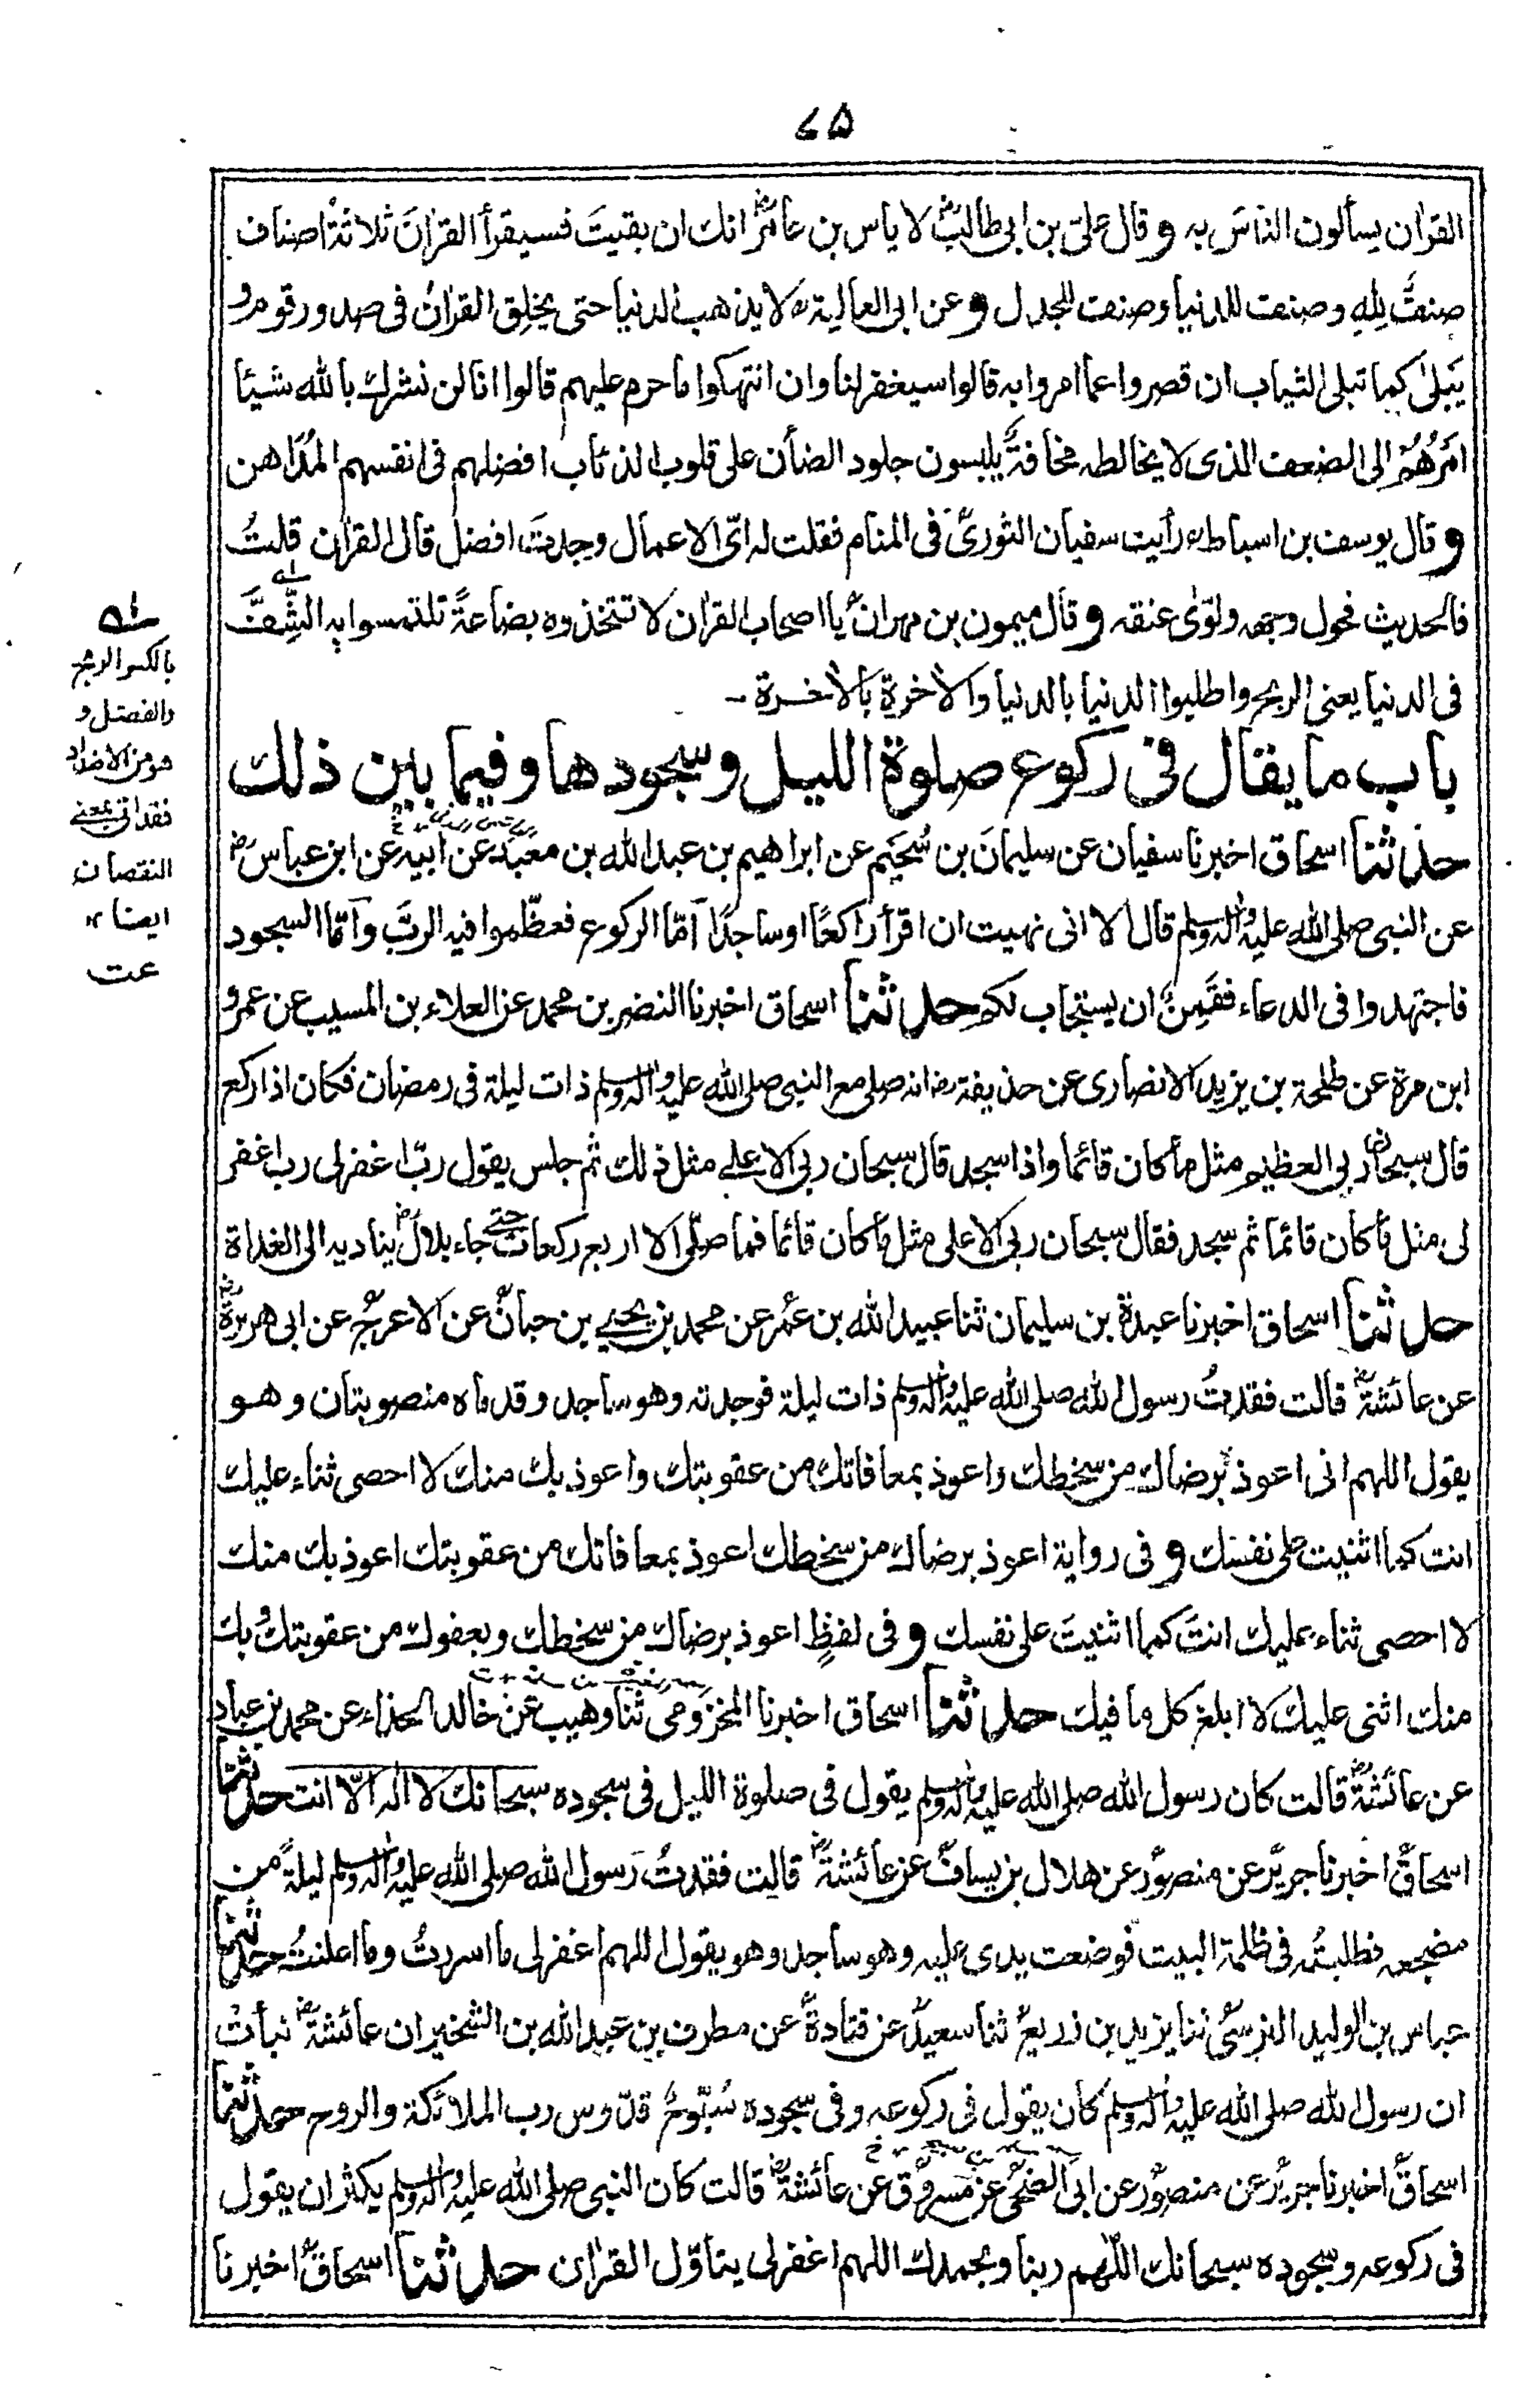 ٧٥
القرآن يسألون الناسَ به و قال علىّ بن ابى طالبؓ لاياس بن عامرؓ انك ان بقيتَ فسيقرأ القرآنَ ثلاثةُ اصناف
صنفٌ لِلّٰهِ وصنف للدنيا وصنف للجدل و عن ابى العاليةؒ لا يذهب الدنيا حتى يخلِق القرآنُ فى صدور قوم و
يَبلىٰ كما تبلى الثياب ان قصروا عما امروا به قالوا سيغفر لنا وان انتهكوا ما حرم عليهم قالوا انا لن نشرك بالله شيئا
امرُهُم الى الضعف الذى لا يخالطه مخافةٌ يلبسون جلود الضأن على قلوب الذئاب افضلهم فى انفسهم المُدَاهن
و قال يوسف بن اسباطؒ رأيت سفيان الثورىؒ فى المنام فقلت له اىّ الاعمال وجدتَ افضل قال القرآن قلتُ
فالحديث فحول وجهه ولوّىٰ عنقه و قال ميمون بن مهرانؒ يا اصحاب القرآن لا تتخذوه بضاعةً تلتمسوا به الشِّفَّ
فى الدنيا يعنى الربح واطلبوا الدنيا بالدنيا والآخرة بالآخرة -
باب ما يقال فى ركوع صلوة الليل وسجودها وفيما بين ذلك
حدثنا اسحاق اخبرنا سفيان عن سليمانَ بن سُحَيم عن ابراهيم بن عبد الله بن معبد عن ابيه عن ابن عباسؓ
عن النبى صلى الله عليه وآله وسلم قال الا انى نهيت ان اقرأ راكعًا او ساجدًا أمّا الركوع فعظّموا فيه الربَّ وأمّا السجود
فاجتهدوا فى الدعاء فقَمِنٌ ان يستجاب لكم حدثنا اسحاق اخبرنا النضر بن محمد عن العلاء بن المسيب عن عمرو
ابن مرة عن طلحة بن يزيد الانصارى عن حذيفةؓ انه صلى مع النبى صلى الله عليه وآله وسلم ذات ليلة فى رمضان فكان اذا ركع
قال سبحان ربى العظيم مثل ما كان قائما واذا سجد قال سبحان ربى الاعلے مثل ذلك ثم جلس يقول ربّ اغفرلى رب اغفر
لى مثل ما كان قائما ثم سجد فقال سبحان ربى الاعلى مثل ما كان قائما فما صلّى الا اربع ركعات حتے جاء بلالؓ يناديه الى الغداة
حدثنا اسحاق اخبرنا عبدة بن سليمان ثنا عبيد الله بن عُمر عن محمد بن يحيے بن حبانؒ عن الاعرجؒ عن ابى هريرةؓ
عن عائشةؓ قالت فقدتُ رسول الله صلى الله عليه وآله وسلم ذات ليلة فوجدته وهو ساجد وقدماه منصوبتان وهو
يقول اللهم انى اعوذ برضاك من سخطك واعوذ بمعافاتك من عقوبتك واعوذ بك منك لا احصى ثناء عليك
انت كما اثنيت على نفسك و فى رواية اعوذ برضاك من سخطك اعوذ بمعافاتك من عقوبتك اعوذ بك منك
لا احصى ثناء عليك انتَ كما اثنيتَ على نفسك و فى لفظٍ اعوذ برضاك من سخطك وبعفوك من عقوبتك وبك
منك اثنى عليك لا ابلغ كل ما فيك حدثنا اسحاق اخبرنا المخزومى ثنا وهيب عن خالد الحذاء عن محمد بن عباد
عن عائشةؓ قالت كان رسول الله صلى الله عليه وآله وسلم يقول فى صلوة الليل فى سجوده سبحانك لا اله الّا انت حدثنا
اسحاقؒ اخبرنا جريرؒ عن منصورؒ عن هلال بن يسافؒ عن عائشةؓ قالت فقدتُ رسول الله صلى الله عليه وآله وسلم ليلةً من
مضجعه فطلبتُه فى ظلمة البيت فوضعت يدى عليه وهو ساجد وهو يقول اللهم اغفرلى ما اسررتُ وما اعلنتُ حدثنا
عباس بن الوليد النرسىؒ ثنا يزيد بن زريعؒ ثنا سعيدؒ عن قتادةؒ عن مطرف بن عبد الله بن الشخير ان عائشةؓ نبأت
ان رسول الله صلى الله عليه وآله وسلم كان يقول فى ركوعه وفى سجوده سُبّوحٌ قدّوس رب الملائكة والروح حدثنا
اسحاقؒ اخبرنا جريرؒ عن منصورؒ عن ابى الضحىؒ عن مسروقؒ عن عائشةؓ قالت كان النبى صلى الله عليه وآله وسلم يكثر ان يقول
فى ركوعه وسجوده سبحانك اللّٰهم ربنا وبحمدك اللهم اغفرلى يتأوّل القرآن حدثنا اسحاقؒ اخبرنا
له
بالكسر الربح
والفضل و
هو من الاضداد
فقد اتى بمعنے
النقصان
ايضا ١٢
عت